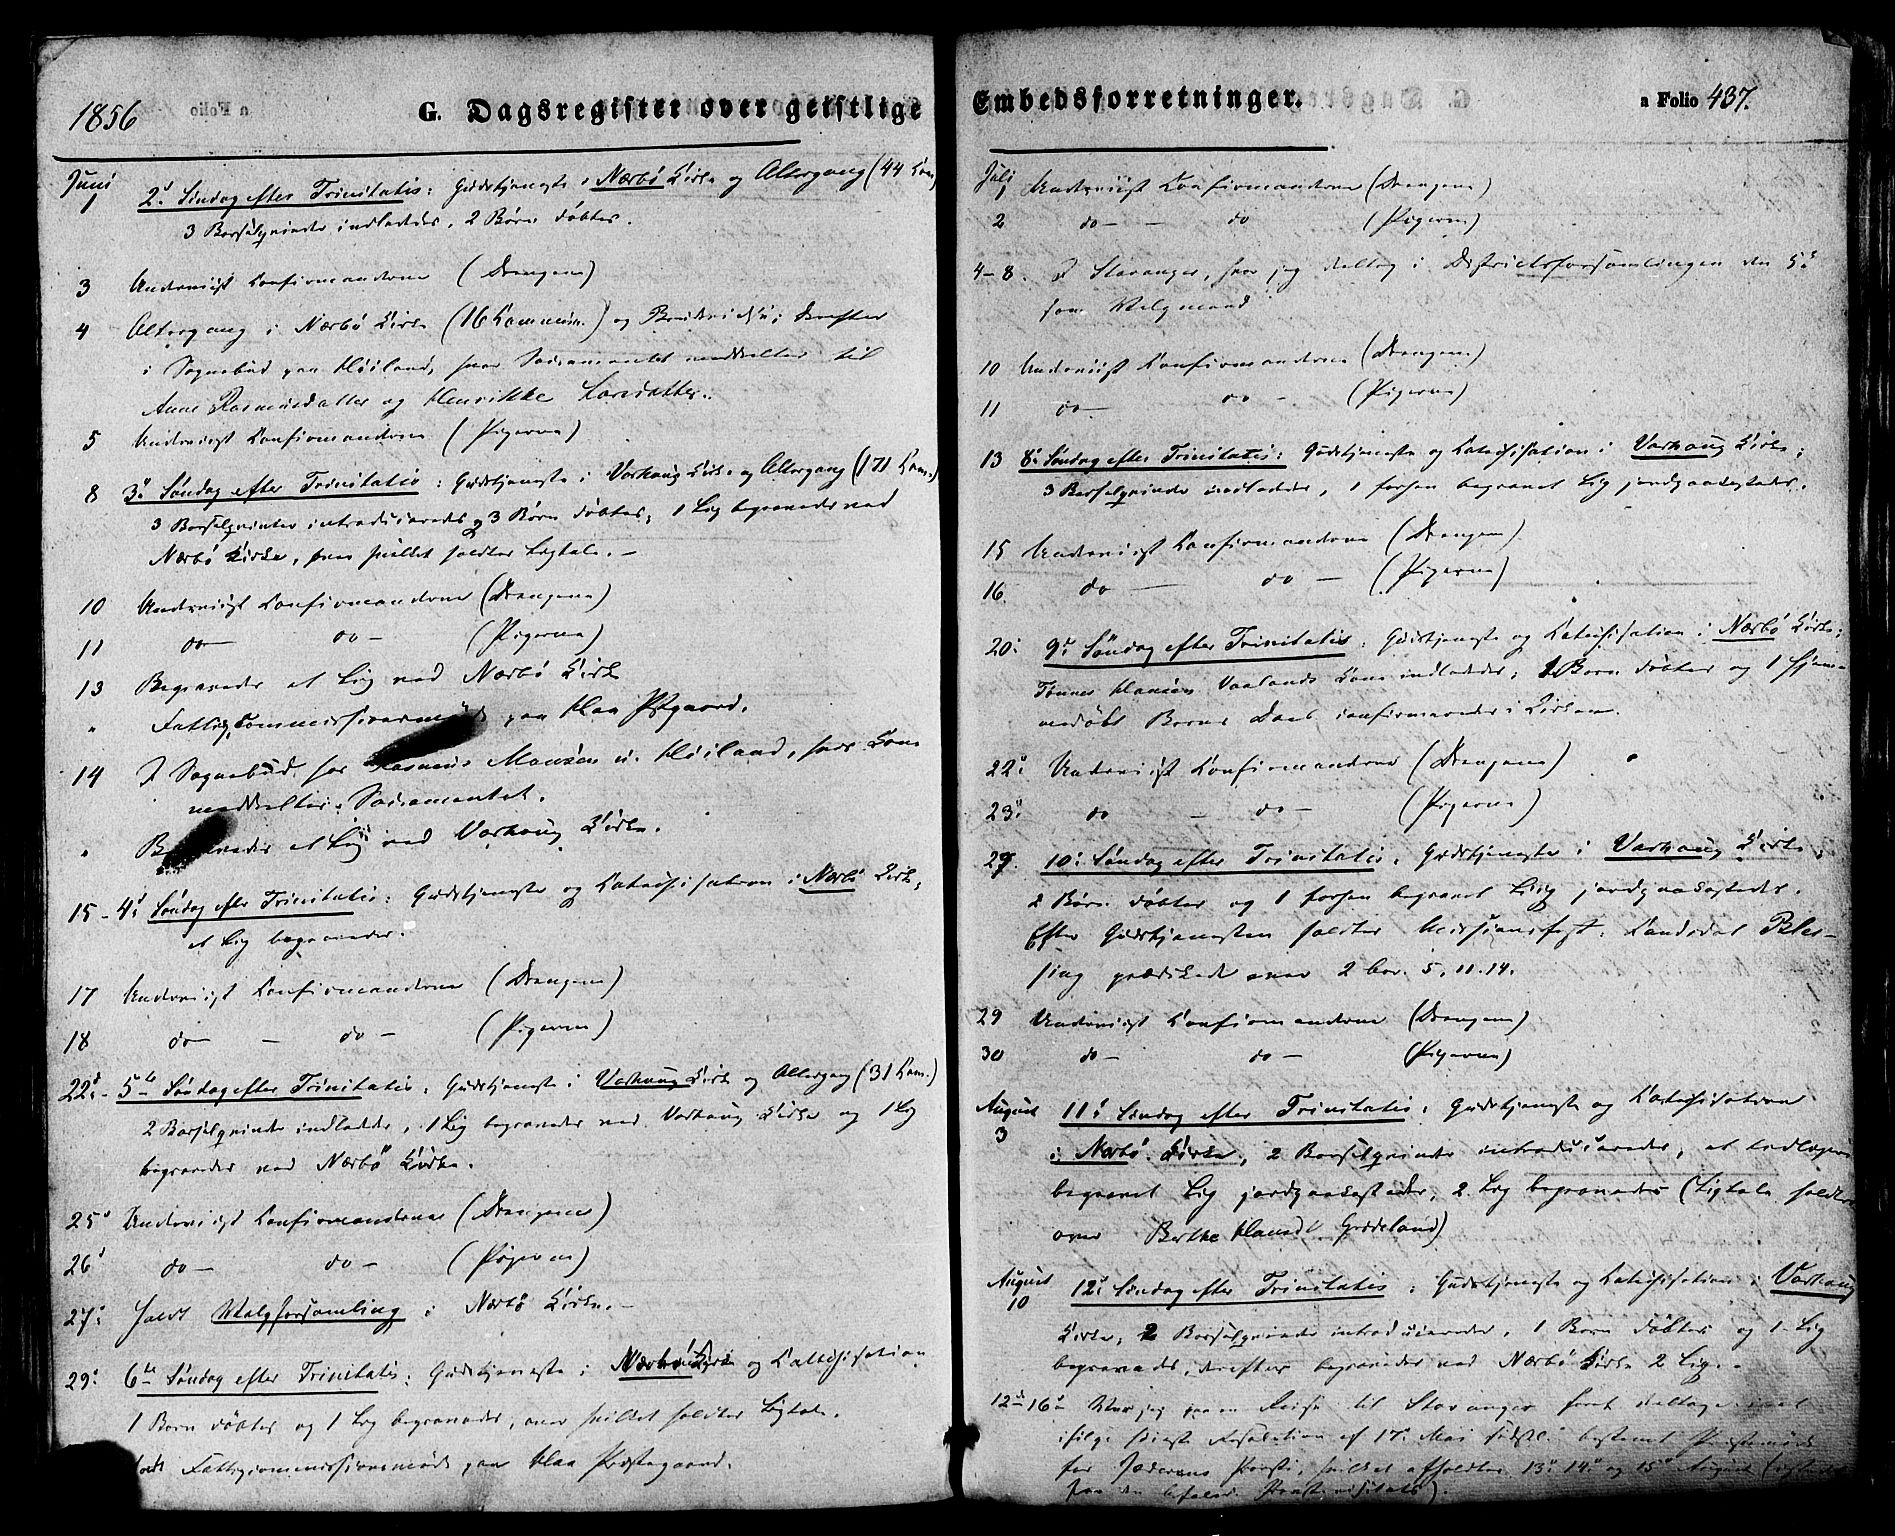 1856
G. Dagsregister over geistlige
Juni
1 2d Søndag efter Trinitatis: Gudstjeneste i Nærbø Kirke og Altergang (44 Com)
3 Barselqvinder indledede, 2 Børn døbtes.
3 Underviist Confirmanderne (Drengene)
4 Altergang i Nærbø Kirke (16 Commun.) og derefter
i Sognebud paa Høiland, hvor Sacramentet meddeltes til
Anne Rasmusdatter og Henrikke Larsdatter.
5 Underviist Confirmanderne (Pigerne)
8 3d Søndag efter Trinitatis: Gudstjeneste i Varhoug Kirke og Altergang (171 Com.)
3 Barselqvinder introduceredes og 3 Børn døbtes, 1 Lig begravedes ved
Nærbø Kirke, over hvilket holdtes Ligtale. –
10 Underviist Confirmanderne (Drengene)
11 do – do – (Pigerne)
13 Begravedes et Lig ved Nærbø Kirke
" Fattigcommissionsmøde paa Haa Pstgaard.
14 I Sognebud hos Rasmus Monsen i Høiland, hvis Kone
meddeltes Sacramentet.
" Begravedes et Lig ved Varhoug Kirke.
15 – 4d Søndag efter Trinitatis: Gudstjeneste og Katechisation i Nærbø Kirke,
et Lig begravedes.
17 Underviist Confirmanderne (Drengene)
18 do – – do – (Pigerne)
22d – 5te Søndag efter Trinitatis: Gudstjeneste i Varhoug Kirke og Altergang (31 Com.)
2 Barselqvinder indledede, 1 Lig begravedes ved Varhoug Kirke og 1 Lig
begravedes ved Nærbø Kirke.
25d Underviist Confirmanderne (Drengene)
26d do – do – (Pigerne)
27d holdt Valgforsamling i Nærbø Kirke. –
29d 6te Søndag efter Trinitatis: Gudstjeneste i Nærbø Kirke og Katechisation
1 Barn døbtes og 1 Lig begravedes, over hvilket holdtes Ligtale.
holdt Fattigcommissionsmøde paa Haa Præstegaard.
Embedsforretninger.
a Folio 437.
Juli
1 Underviist Confirmanderne (Drengene)
2 do – – do (Pigerne)
4–8. I Stavanger, hvor jeg deltog i Districtsforsamlingen den 5d
som Valgmand
10 Underviist Confirmanderne (Drengene)
11 do – do – (Pigerne)
13 8d Søndag efter Trinitatis: Gudstjeneste og Katechisation i Varhoug Kirke;
3 Barselqvinder indledede, 1 forhen begravet Lig jordpaakastedes.
15 Underviist Confirmanderne (Drengene)
16. do – do – (Pigerne)
20d 9d Søndag efter Trinitatis: Gudstjeneste og Katechisation i Nærbø Kirke;
Tønnes Hansen Vaalands Kone indlededes, 1 Barn døbtes og 1 hjemme-
medøbt Barns Daab confirmeredes i Kirken.
22d Underviist Confirmanderne (Drengene)
23d do – do – (Pigerne)
27 10d Søndag efter Trinitatis: Gudstjeneste i Varhoug Kirke,
2 Børn døbtes og 1 forhen begravet Lig jordpaakastedes.
Efter Gudstjenesten holdtes Missionsfest. Candidat Bles-
sing prædikede over 2 Cor. 5, 11.14.
29 Underviist Confirmanderne (Drengene)
30 do – do – (Pigerne)
August
3 11d Søndag efter Trinitatis: Gudstjeneste og Katechisation
i Nærbø Kirke, 2 Barselqvinder introduceredes, et
begravet Lig jordpaakastedes, 2 Lig begravedes (Ligtale holdtes
over Berthe Hansd Grødeland)
August
10 12d Søndag efter Trinitatis: Gudstjeneste og Katechisation i Varhoug
Kirke, 2 Barselqvinder introduceredes, 1 Barn døbtes og 1 Lig
begravedes, derefter begravedes ved Nærbø Kirke 2 Lig. –
12d–16d Var jeg paa en Reise til Stavanger for at deltage i det
ifølge Resolution af 17d Mai sidstl. bestemt Præstemøde
for Jæderens Prosti, hvilket afholdtes 13d 14d og 15d August